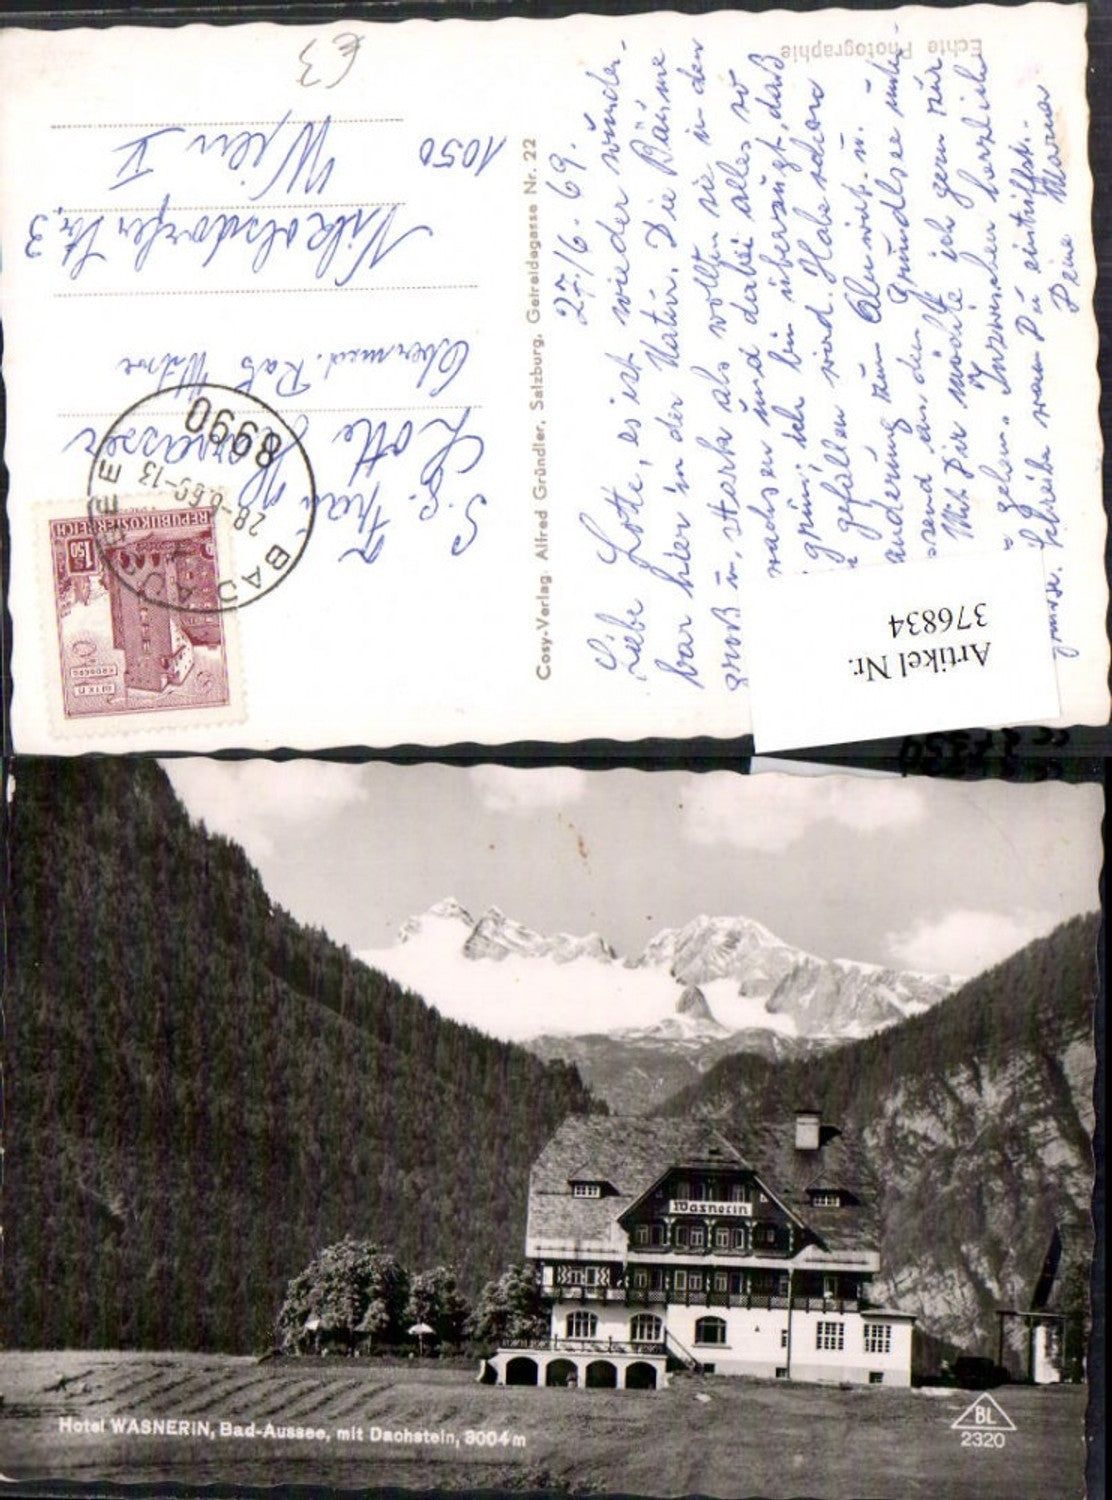 Echte Photographie
27./6. 69.
Liebe Lotte, es ist wieder wunder-
bar hier in der Natur. Die Bäume
groß u. stark als wollten sie in den
wachsen und dabei alles so
grün; ich bin überzeugt, daß
gefallen wird. Habe schon
anderung zum u.
send an den Grundlsee unter-
Mit Dir möchte ich gern zur
gehen. Inzwischen herzliche
schreibe wann Du eintriffst.-
Deine
Cosy-Verlag, Alfred Gründler, Salzburg, Getreidegasse Nr. 22
S.g.
Frau
Lotte
Obermed. Rats Witwe
Nikolsdorfer Str. 3
Wien V
1050
€3
REPUBLIK ÖSTERREICH
1.50
8990
BAD AUSSEE
28.-6.69-13
Artikel Nr.
376834
Wasnerin
Hotel WASNERIN, Bad-Aussee, mit Dachstein, 3004 m
BL
2320